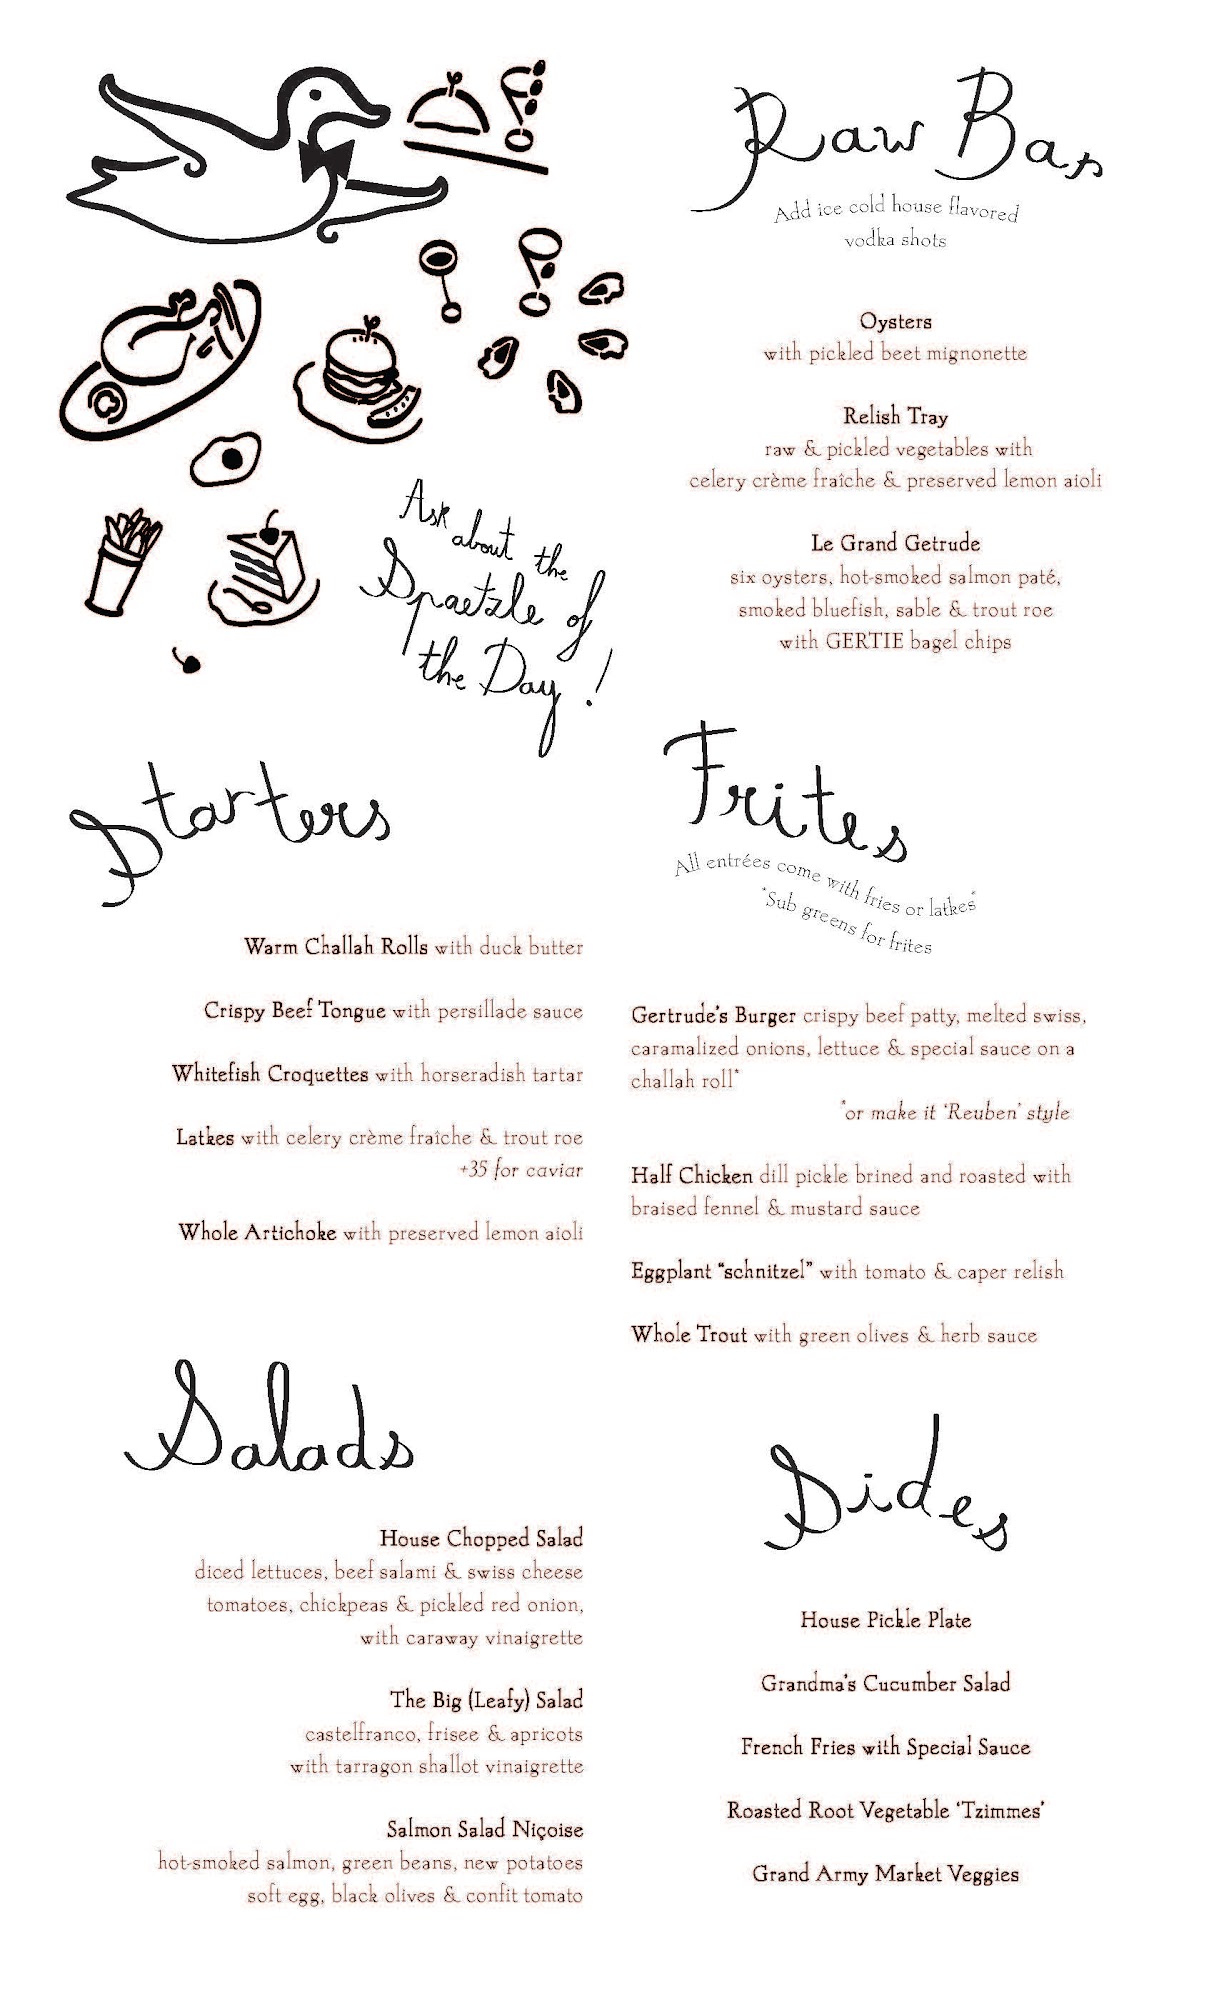 Raw Bar
Add ice cold house flavored
vodka shots
Oysters
with pickled beet mignonette
Relish Tray
raw & pickled vegetables with
celery crème fraîche & preserved lemon aioli
Le Grand Getrude
six oysters, hot-smoked salmon paté,
smoked bluefish, sable & trout roe
with GERTIE bagel chips
Ask about the
Spaetzle of
the Day!
Starters
Warm Challah Rolls with duck butter
Crispy Beef Tongue with persillade sauce
Whitefish Croquettes with horseradish tartar
Latkes with celery crème fraîche & trout roe
+35 for caviar
Whole Artichoke with preserved lemon aioli
Frites
All entrées come with fries or latkes*
*Sub greens for frites
Gertrude's Burger crispy beef patty, melted swiss,
caramalized onions, lettuce & special sauce on a
challah roll*
*or make it 'Reuben' style
Half Chicken dill pickle brined and roasted with
braised fennel & mustard sauce
Eggplant “schnitzel” with tomato & caper relish
Whole Trout with green olives & herb sauce
Salads
House Chopped Salad
diced lettuces, beef salami & swiss cheese
tomatoes, chickpeas & pickled red onion,
with caraway vinaigrette
The Big (Leafy) Salad
castelfranco, frisee & apricots
with tarragon shallot vinaigrette
Salmon Salad Niçoise
hot-smoked salmon, green beans, new potatoes
soft egg, black olives & confit tomato
Sides
House Pickle Plate
Grandma's Cucumber Salad
French Fries with Special Sauce
Roasted Root Vegetable ‘Tzimmes’
Grand Army Market Veggies